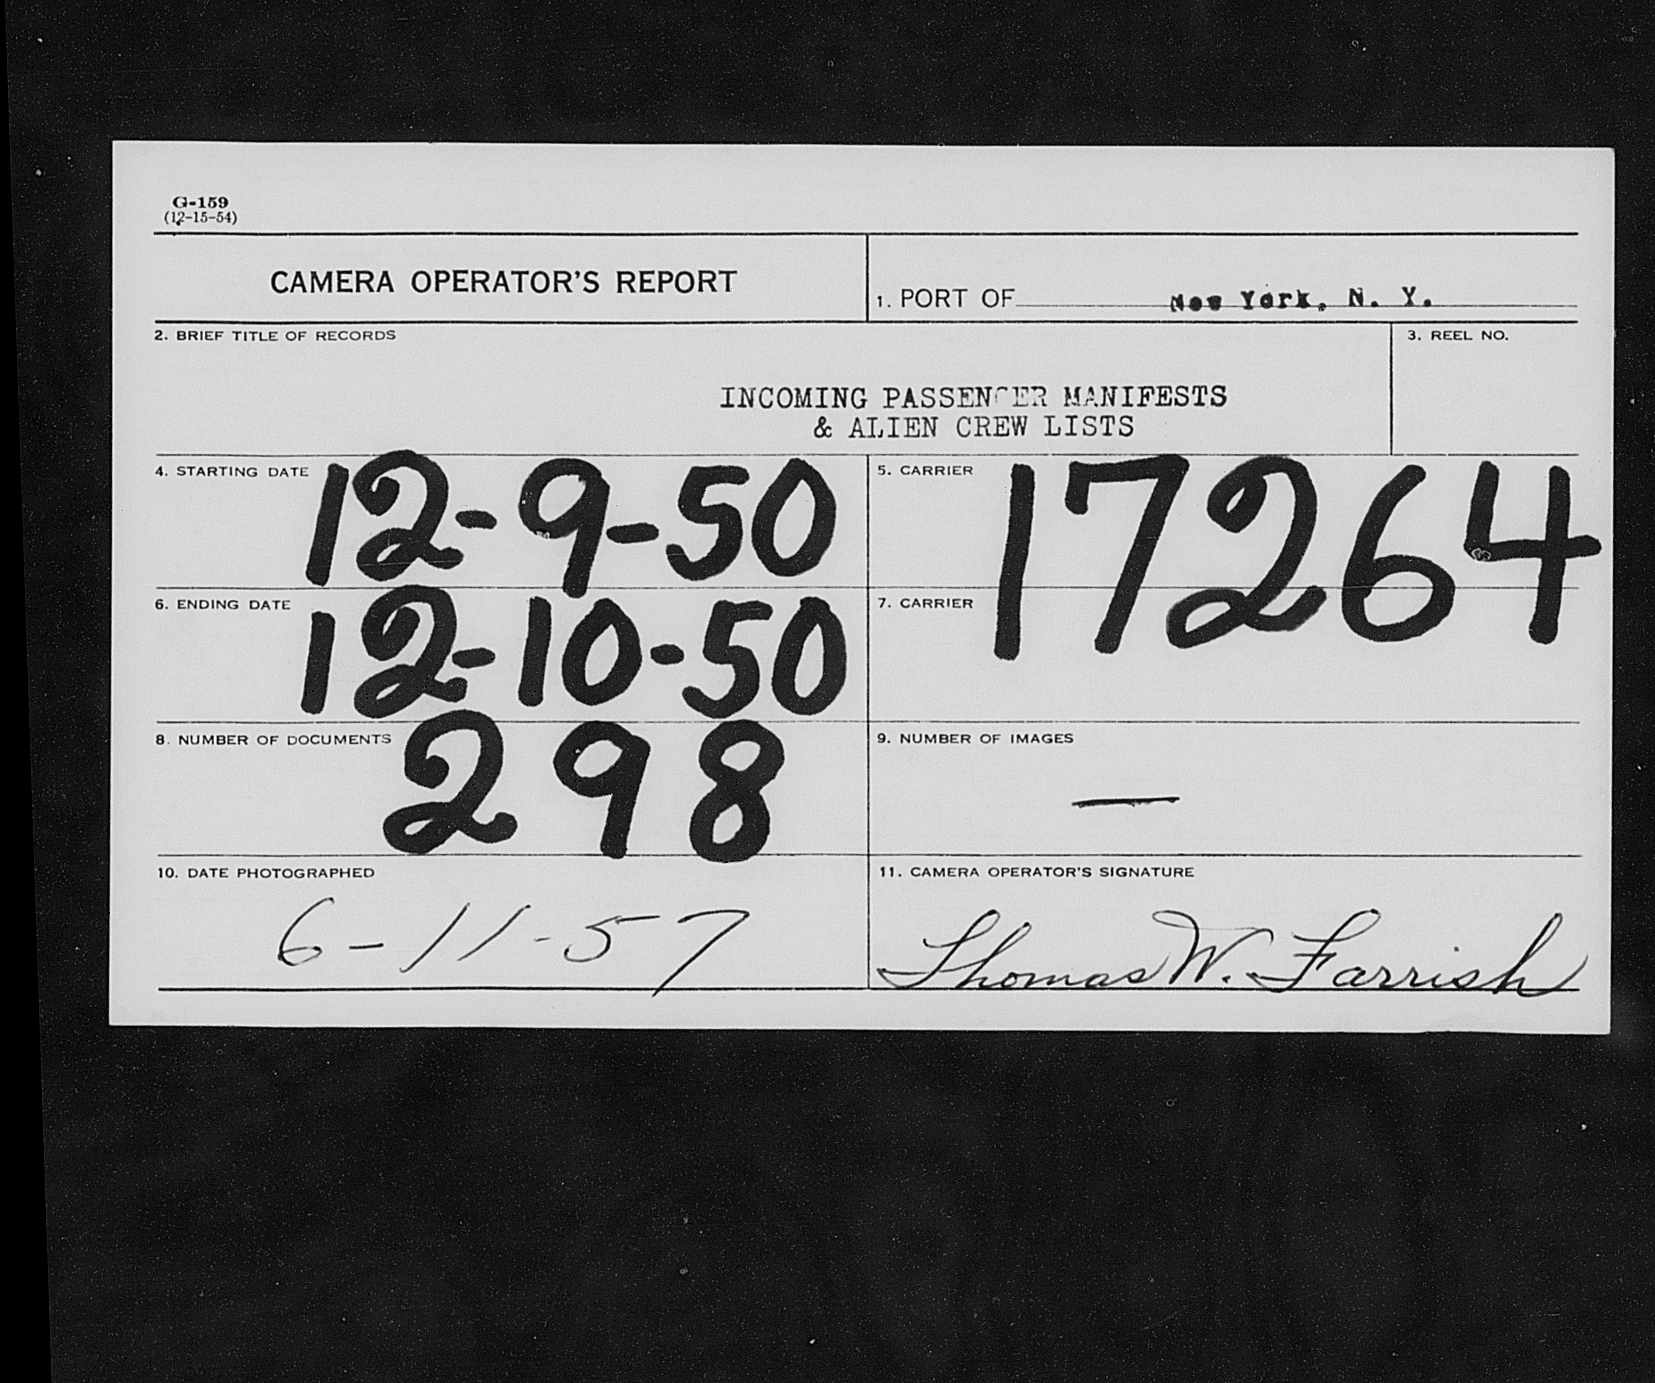 G-159
(12-15-54)
CAMERA OPERATOR'S REPORT
1. PORT OF New York, N. Y.
2. BRIEF TITLE OF RECORDS
3. REEL NO.
INCOMING PASSENGER MANIFESTS
& ALIEN CREW LISTS
4. STARTING DATE 12-9-50
5. CARRIER 17264
6. ENDING DATE 12-10-50
7. CARRIER
8. NUMBER OF DOCUMENTS 298
9. NUMBER OF IMAGES —
10. DATE PHOTOGRAPHED
6-11-57
11. CAMERA OPERATOR'S SIGNATURE
Thomas W. Farrish